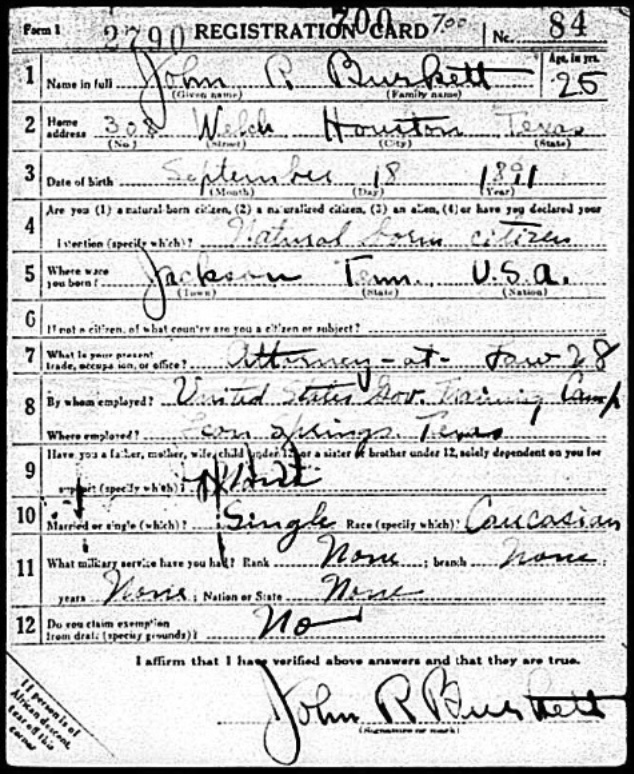 Form 1 2790 REGISTRATION CARD 700 700 No. 84
1 Name in full John R Burkett Age, in yrs. 25
(Given name) (Family name)
2 Home address 308 Welch Houston Texas
(No.) (Street) (City) (State)
3 Date of birth September 18 1891
(Month) (Day) (Year)
4 Are you (1) a natural-born citizen, (2) a naturalized citizen, (3) an alien, (4) or have you declared your
intention (specify which)? Natural born citizen
5 Where were you born? Jackson Tenn. U.S.A.
(Town) (State) (Nation)
6 If not a citizen, of what country are you a citizen or subject?
7 What is your present trade, occupation, or office? Attorney-at-Law 28
8 By whom employed? United States Gov. Training Camp
Where employed? Leon Springs, Texas
9 Have you a father, mother, wife, child under 12, or a sister or brother under 12, solely dependent on you for
support (specify which)?
10 Married or single (which)? Single Race (specify which)? Caucasian
11 What military service have you had? Rank None ; branch None ;
years None ; Nation or State None
12 Do you claim exemption from draft (specify grounds)? No
I affirm that I have verified above answers and that they are true.
John R Burkett
(Signature or mark)
If person is of
African descent,
tear off this
corner